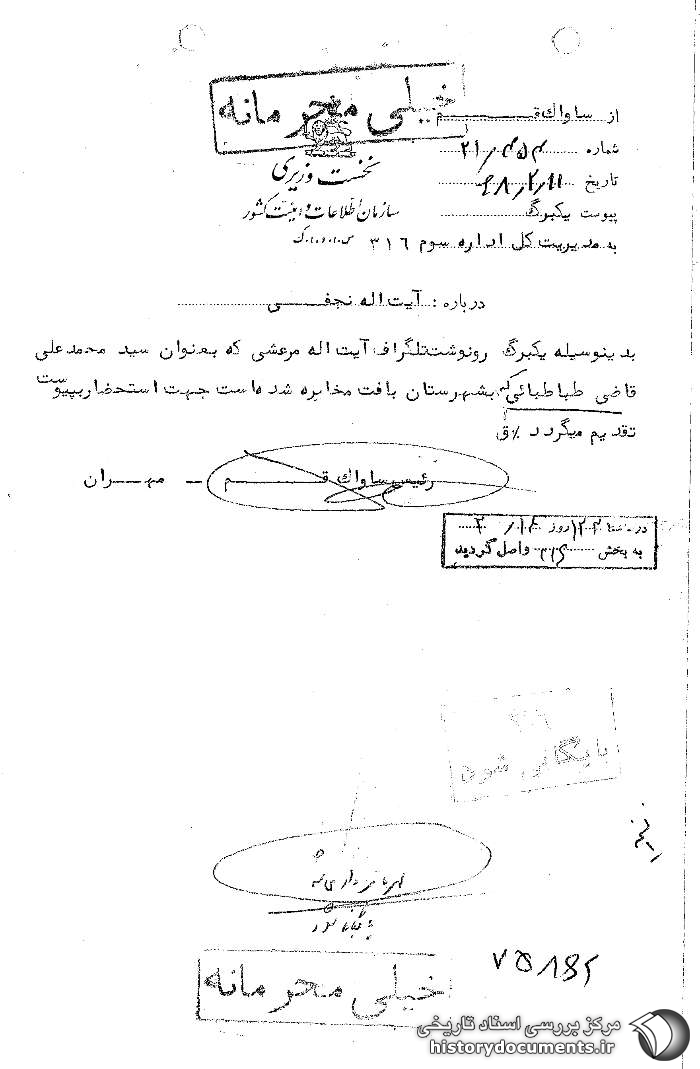 خیلی محرمانه
نخست وزیری
سازمان اطلاعات و امنیت کشور
از ساواک قم
شماره ۲۱/۴۵۳
تاریخ ۴۸/۲/۱۱
پیوست یکبرگ
به مدیریت کل اداره سوم ۳۱۶
درباره : آیت اله نجفی
بدینوسیله یکبرگ رونوشت تلگراف آیت اله مرعشی که بعنوان سید محمد علی
قاضی طباطبائی که بشهرستان بافت مخابره شده است جهت استحضار بپیوست
تقدیم میگردد ٪ق
رئیس ساواک قم - مهران
در ساعت ۱۲ روز ۲/۱۴
به بخش ۳۱۶ واصل گردید
۳۱۶
بایگانی شود
بایگانی شود
۷۵۸۴۲
خیلی محرمانه
مرکز بررسی اسناد تاریخی
historydocuments.ir